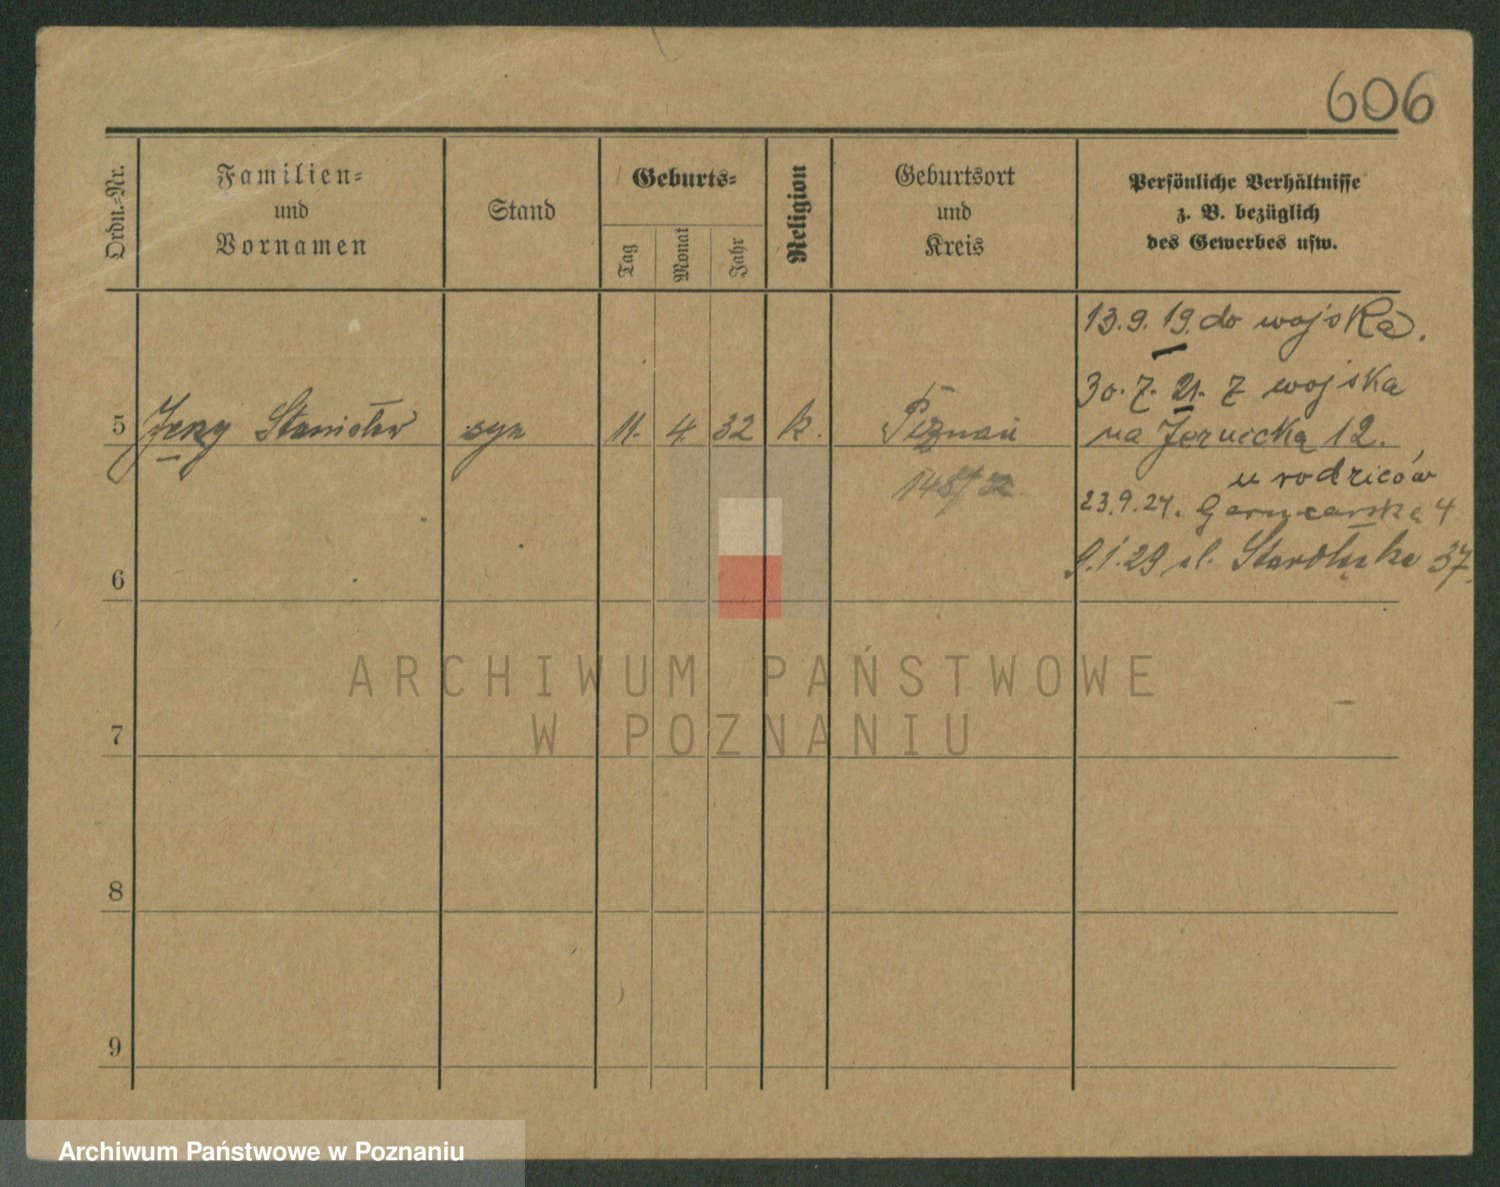 606
Ordn.-Nr.
Familien-
und
Vornamen
Stand
Geburts-
Tag
Monat
Jahr
Religion
Geburtsort
und
Kreis
Persönliche Verhältnisse
z. B. bezüglich
des Gewerbes usw.
13.9.19. do wojska.
30.7.21. z wojska
5 Jerzy Stanisław syn 11. 4. 32 k. Poznań na 12.
u rodziców
148/32.
23.9.27. Garncarska 4
9.1.29 ul. 37.
6
7
8
9
ARCHIWUM PAŃSTWOWE
W POZNANIU
Archiwum Państwowe w Poznaniu